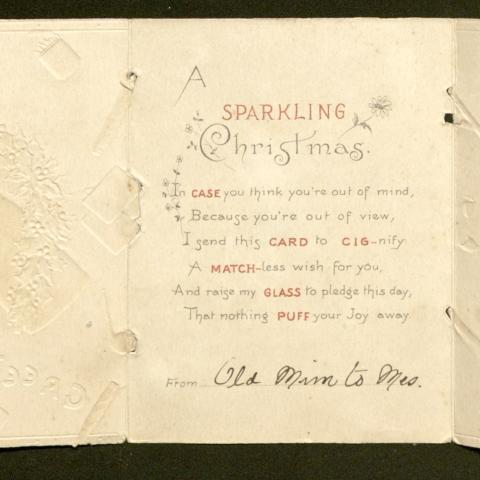 A
SPARKLING
Christmas.
In CASE you think you're out of mind,
Because you're out of view,
I send this CARD to CIG-nify
A MATCH-less wish for you,
And raise my GLASS to pledge this day,
That nothing PUFF your Joy away
From Old Mim to Mes.
GREE